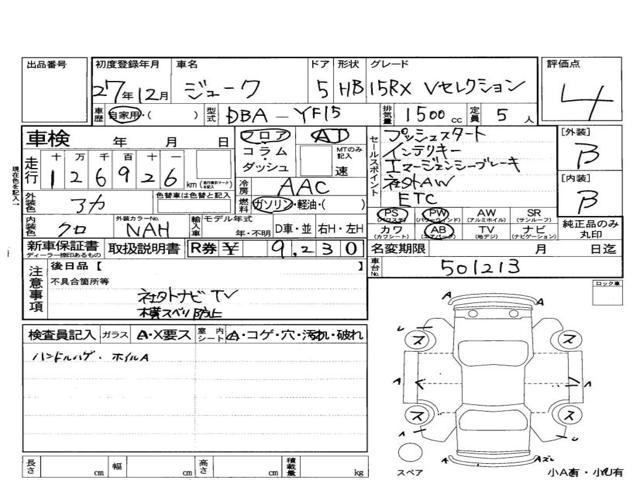 出品番号 初度登録年月 車名 ドア 形状 グレード 評価点
27年12月 ジューク 5 HB 15RX Vセレクション 4
車歴 自家用・( ) 型式 DBA-YF15 排気量 1500cc 定員 5人
車検 年 月 日 フロア・コラム・ダッシュ AT MTのみ記入 速
走行 十万千百十一 126926km
冷房 AAC
外装色 アカ 色替車は色替と記入 燃料 ガソリン・軽油・( )
内装色 クロ 外装カラーNo. NAH 輸入車 モデル年式 年・不明 D車・並 右H・左H
セールスポイント プッシュスタート
インテリキー
エマージェンシーブレーキ
社外AW
ETC
[外装] B
[内装] B
PS PW AW SR
(パワステ) (パワーウィンド) (アルミホイル) (サンルーフ)
カワ AB TV ナビ
(カワシート) (エアバック) (地デジ) (ナビゲーション)
純正品のみ丸印
現在色を記入→
新車保証書 取扱説明書 R券 ¥ 9,230 名変期限 月 日迄
ディーラー捺印あるもの
車台No. 501213
注意事項 後日品【 】
不具合箇所等
社外ナビTV
横スベリ防止
ロック車
検査員記入 ガラス A・X要ス 室内シート A・コゲ・穴・汚れ・破れ
ハンドルハゲ・ホイルA
A A
U ス ス
A A A
ス ス
A
スペア 小A有・小U有
長さ cm 幅 cm 高さ cm 積載量 kg